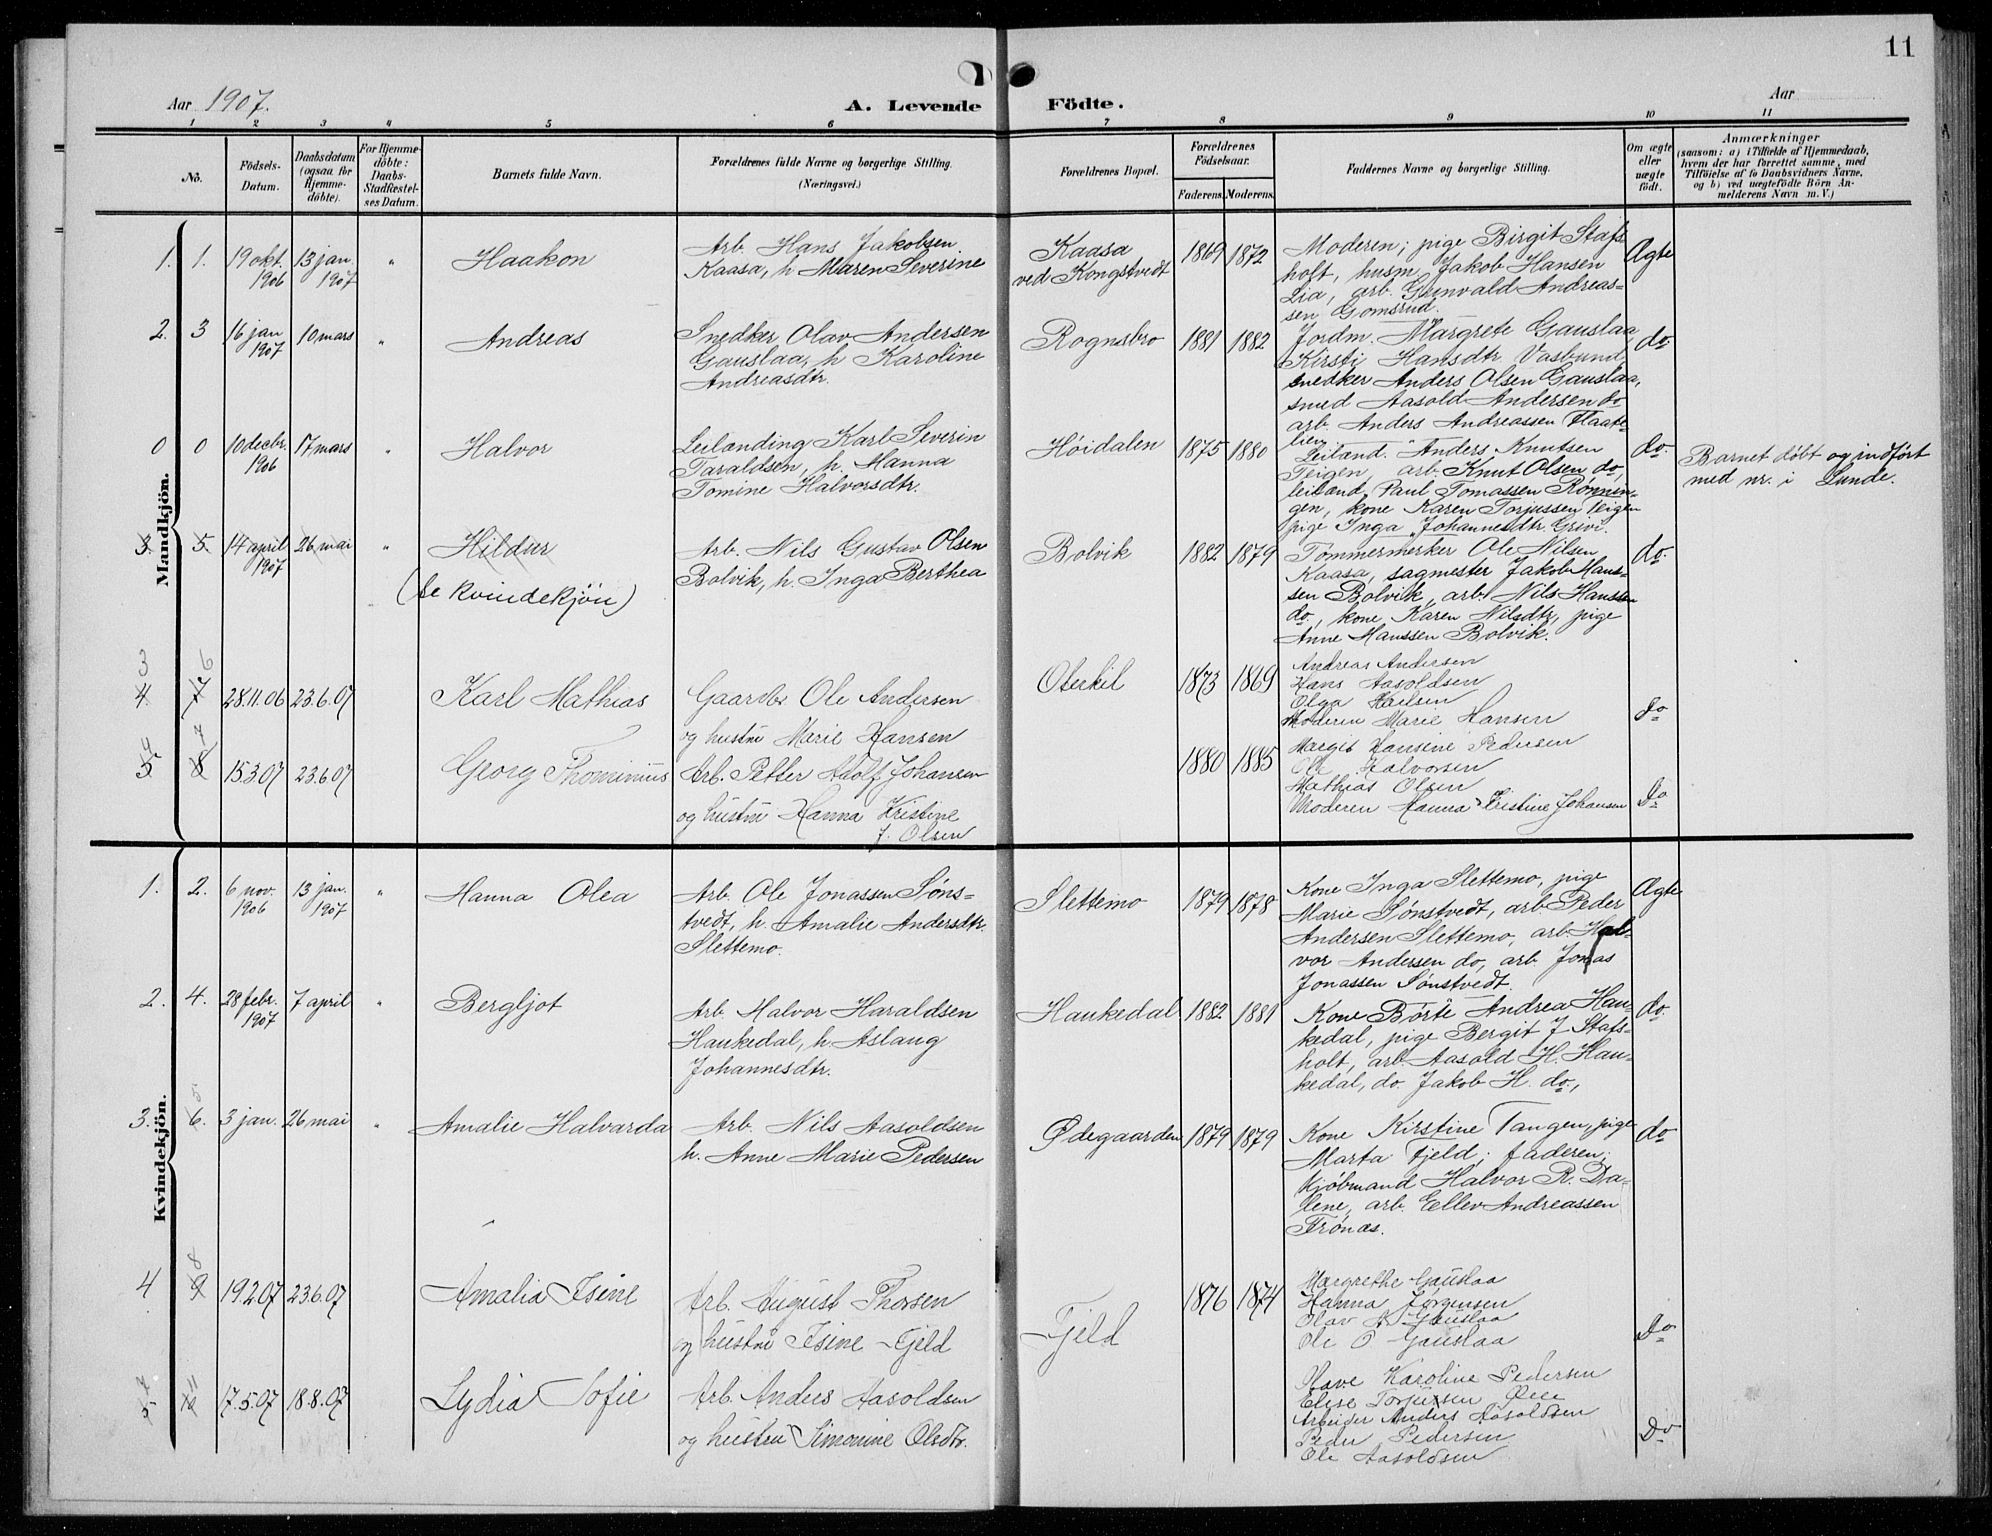 11
Aar 1907.
A. Levende Födte.
Aar
1 2 3 4 5 6 7 8 9 10 11
No.
Födsels-
Datum.
Daabsdatum
(ogsaa for
Hjemme-
döbte).
For Hjemme-
döbte:
Daabs-
Stadfæstel-
ses Datum.
Barnets fulde Navn.
Forældrenes fulde Navne og borgerlige Stilling.
(Næringsvei.)
Forældrenes Bopæl.
Forældrenes
Födselsaar.
Faderens. Moderens.
Faddernes Navne og borgerlige Stilling.
Om ægte
eller
uægte
födt.
Anmærkninger
(saasom: a) i Tilfælde af Hjemmedaab,
hvem der har forrettet samme, med
Tilföielse af to Daabsvidners Navne,
og b) ved uægtefödte Börn An-
melderens Navn m. V.)
Mandkjön.
1. 1. 19 okt. 1906 13 jan. 1907 " Haakon
Arb. Hans Jakobsen
Kaasa, h. Maren Severine
Kaasa
ved Kongstvedt
1869 1872
Moderen; pige Birgit Stafs-
holt, husm. Jakob Hansen
Lia, arb. Grunvald Andreas-
sen Gomsrud.
Ægte
2. 3 16 jan 1907 10 mars " Andreas
Snedker Olav Andersen
Gauslaa, h Karoline
Andreasdtr.
Rognsbro
1881 1882
Jordm. Margrete Gauslaa,
Kirsti Hansdtr Vasbund,
snedker Anders Olsen Gauslaa,
smed Aasold Andersen do
arb. Anders Andreassen Flaate-
lien
do
0 0 10 decbr. 1906 17 mars " Halvor
Leilænding Karl Severin
Taraldsen, h. Hanna
Tomine Halvorsdtr.
Høidalen
1875 1880
Leilænd. Anders Knutsen
Teigen, arb. Knut Olsen do,
leilænd. Paul Tomassen Rønnin-
gen, kone Karen Torjussen Teigen
pige Inga Johannesdtr Grivi.
do.
Barnet døbt og indført
med nr. i Lunde.
3 5. 14 april 1907 26 mai " Hildur
(se kvindekjön)
Arb. Nils Gustav Olsen
Bolvik, h. Inga Berthea
Bolvik
1882 1879
Tømmermerker Ole Nilsen
Kaasa, sagmester Jakob Hans-
sen Bolvik, arb. Nils Hanssen
do, kone Karen Nilsdtr, pige
Anne Hanssen Bolvik.
do
3
4 7 6 28.11.06 23.6.07 Karl Mathias
Gaardbr. Ole Andersen
og hustru Marie Hansen
Oterkil
1873 1869
Andreas Andersen
Hans Aasoldsen
Olga Karlsen
Moderen Marie Hansen
Do
4
5 8 7 15.3.07 23.6.07 Georg Thominius
Arb. Petter Adolf Johansen
og hustru Hanna Kristine
J. Olsen
1880 1885
Margit Hansine Pedersen
Ole Halvorsen
Mathias Olsen
Moderen Hanna Kristine Johansen
Do
Kvindekjön.
1. 2. 6 nov. 1906 13 jan. 1907 " Hanna Olea
Arb. Ole Jonassen Søns-
tvedt, h. Amalie Andersdtr.
Slettemo.
Slettemo
1879 1878
Kone Inga Slettemo, pige
Marie Sønstvedt, arb. Peder
Andersen Slettemo, arb. Hal-
vor Andersen do, arb Jonas
Jonassen Sønstvedt.
Ægte
2. 4. 28 febr. 1907 7 april " Bergljot
Arb. Halvor Haraldsen
Haukedal, h. Aslaug
Johannesdtr.
Haukedal
1882 1881
Kone Børte Andrea Hau-
kedal, pige Bergit J. Stafs-
holt, arb. Aasold H. Hau-
kedal, do Jakob H. do,
do.
3. 6. 5 3 jan. 26 mai " Amalie Halvarda
Arb. Nils Aasoldsen
h. Anne Marie Pedersen
Ødegaarden
1879 1879
Kone Kirstine Tangen, pige
Marta Fjeld; faderen;
kjøbmand Halvor R. Da-
lene, arb. Ellev Andreassen
Trønæs.
do
4 9 8 19.2.07 23.6.07 Amalia Isine
Arb. August Thorsen
og hustru Isine Fjeld
Fjeld
1876 1874
Margrethe Gauslaa
Hanna Jørgensen
Olav A Gauslaa
Ole O Gauslaa
Do
17.5.07 18.8.07 Lydia Sofie
Arb. Anders Aasoldsen
og hustru Simonine Olsdtr.
Karoline Pedersen
Elise Torjussen
Arbeider Anders Aasoldsen
Peder Pedersen
Ole Aasoldsen
Do